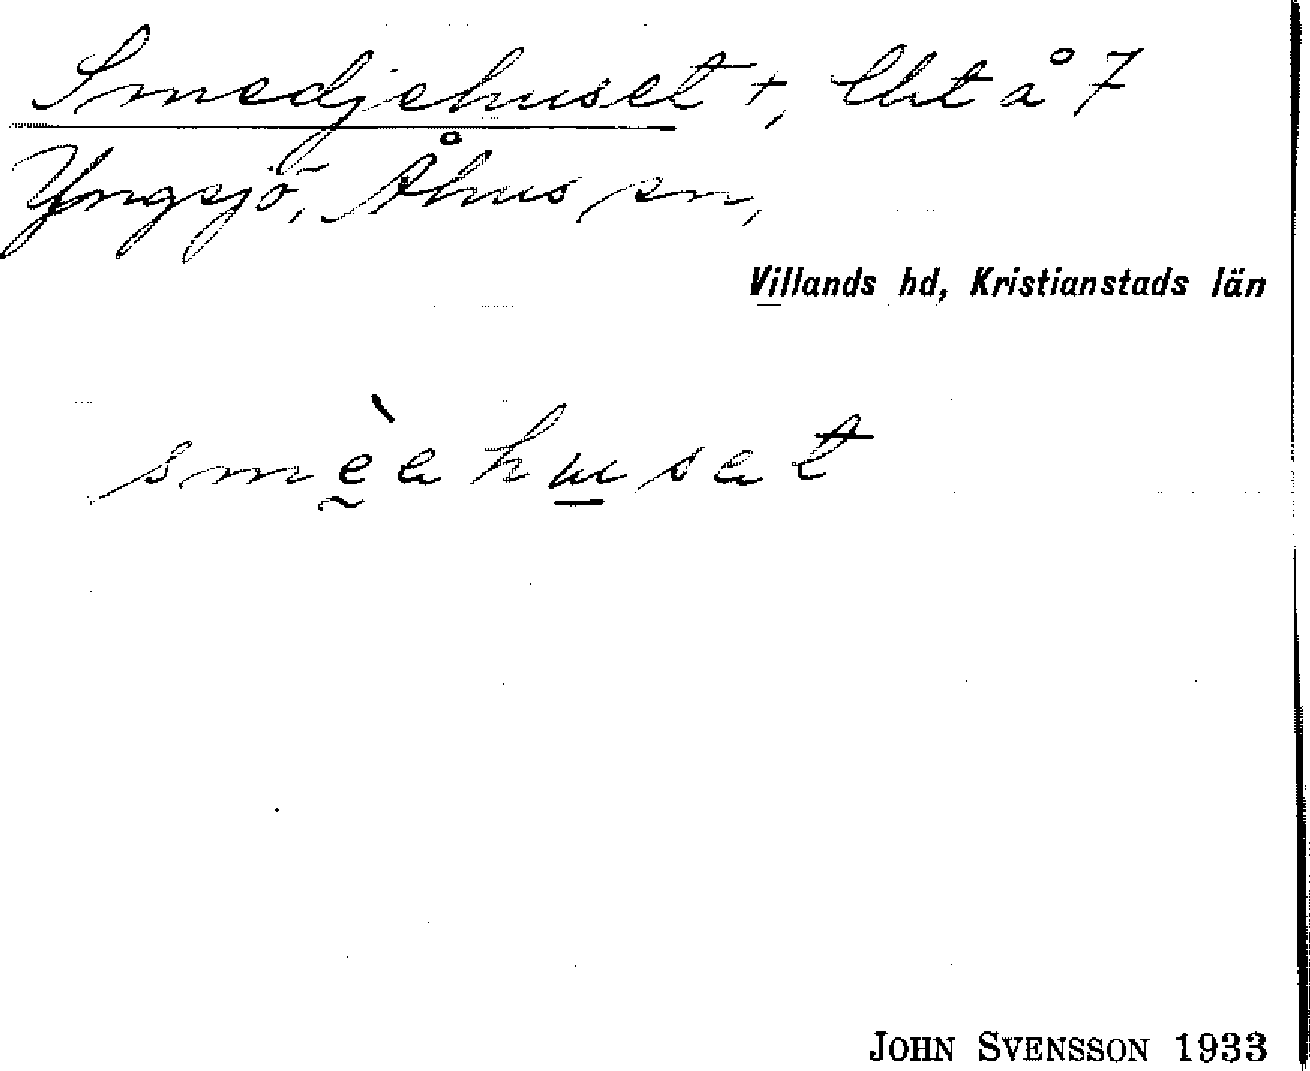 Smedjehuset +, lht å 7
Yngsjö, Åhus sn,
Villands hd, Kristianstads län
smèahusat
JOHN SVENSSON 1933